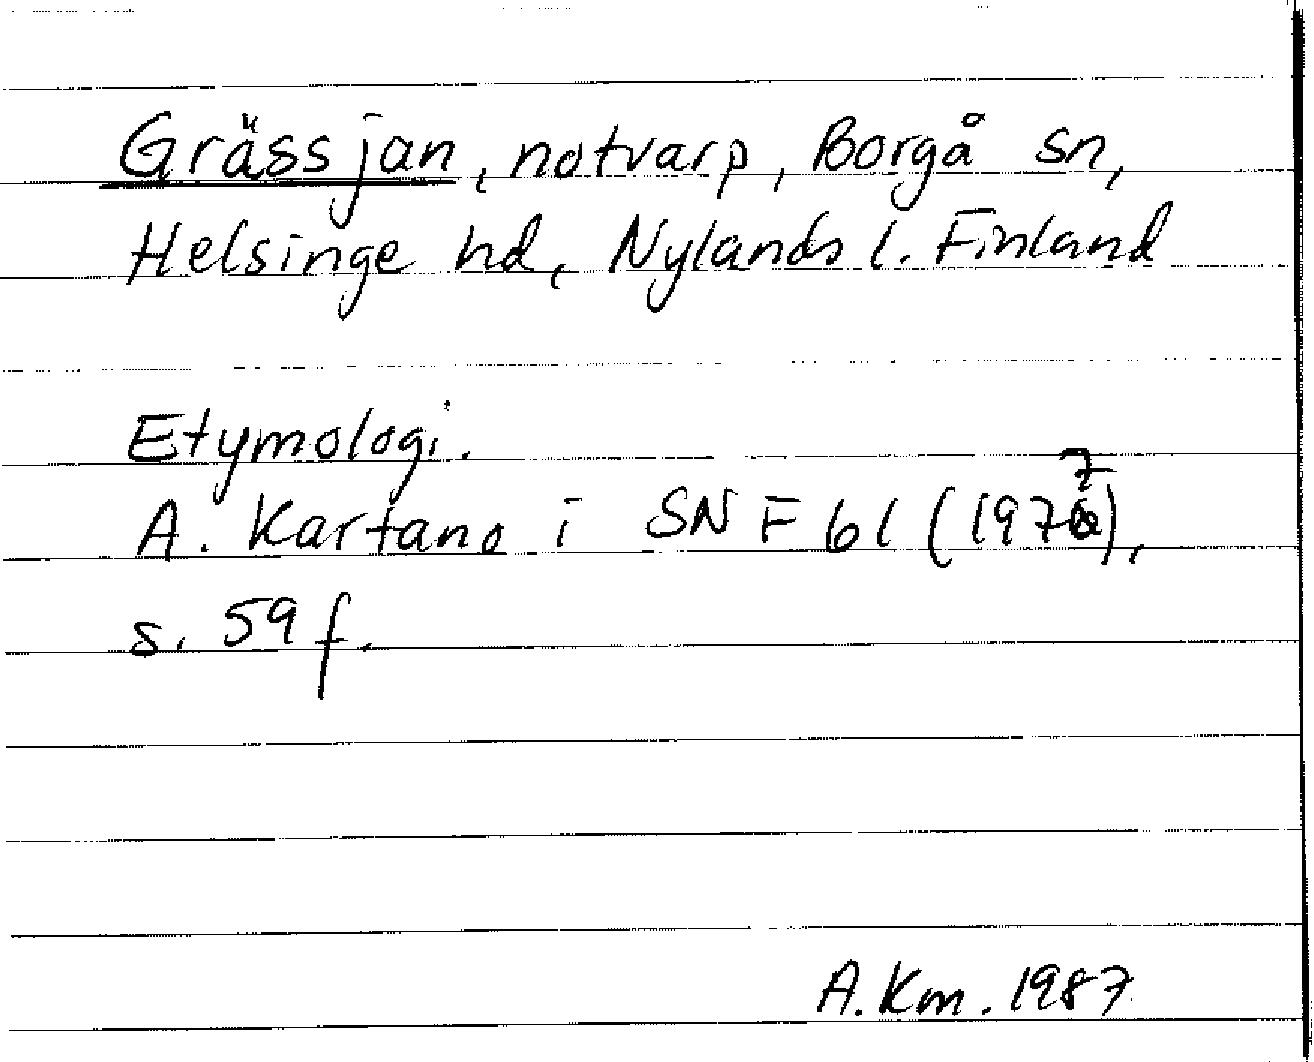 Grässjan, notvarp, Borgå sn,
Helsinge hd, Nylands l. Finland
Etymologi.
A. Kartano i SNF 61 (1977),
s. 59 f.
A.Km. 1987